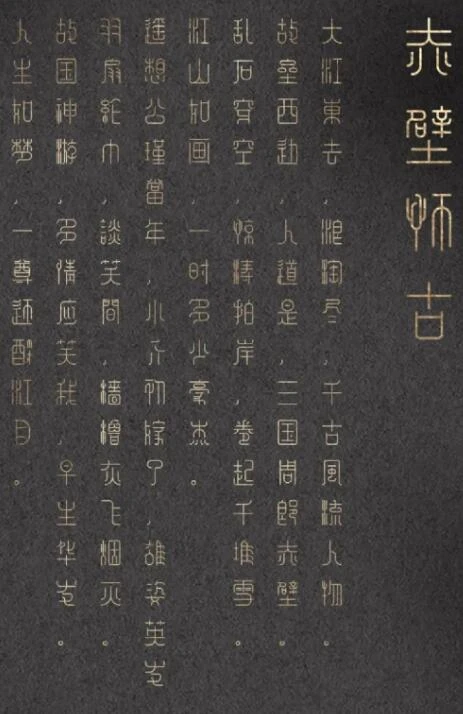 赤壁怀古
大江東去,浪淘尽,千古風流人物。
故壘西边,人道是,三国周郎赤壁。
乱石穿空,惊濤拍岸,卷起千堆雪。
江山如画,一时多少豪杰。
遥想公瑾當年,小乔初嫁了,雄姿英发
羽扇綸巾,談笑間,檣櫓灰飞烟灭。
故国神游,多情应笑我,早生华发。
人生如梦,一尊还酹江月。